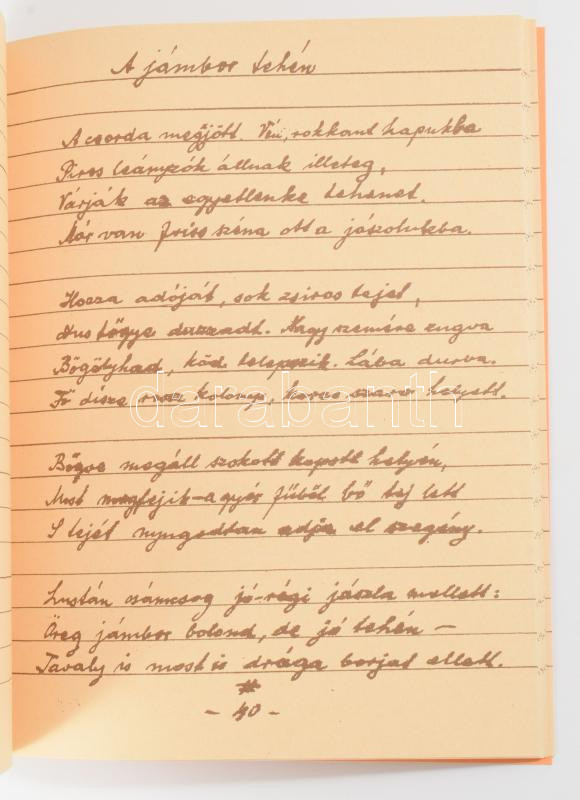 A jámbor tehén
A csorda megjött. Vén, rokkant kapukba
Piros leányzók állnak illeteg,
Várják az egyetlenke tehenet.
Már van friss széna ott a jászolukba.
Hozza adóját, sok zsiros tejet,
Hus tőgye duzzadt. Nagy szemére zugva
Bögölyhad, köd telepszik. Lába durva.
Fő dísze rossz kolomp, korcs szarv helyett.
Bőgve megáll szokott kopott helyén,
Most megfejik - a gyér fűből bő tej lett
S tejét nyugodtan adja el szegény.
Lustán csámcsog jó-régi jászla mellett:
Öreg jámbor bolond, de jó tehén -
Tavaly is most is drága borjat ellett.
#
- 40 -
darabanth